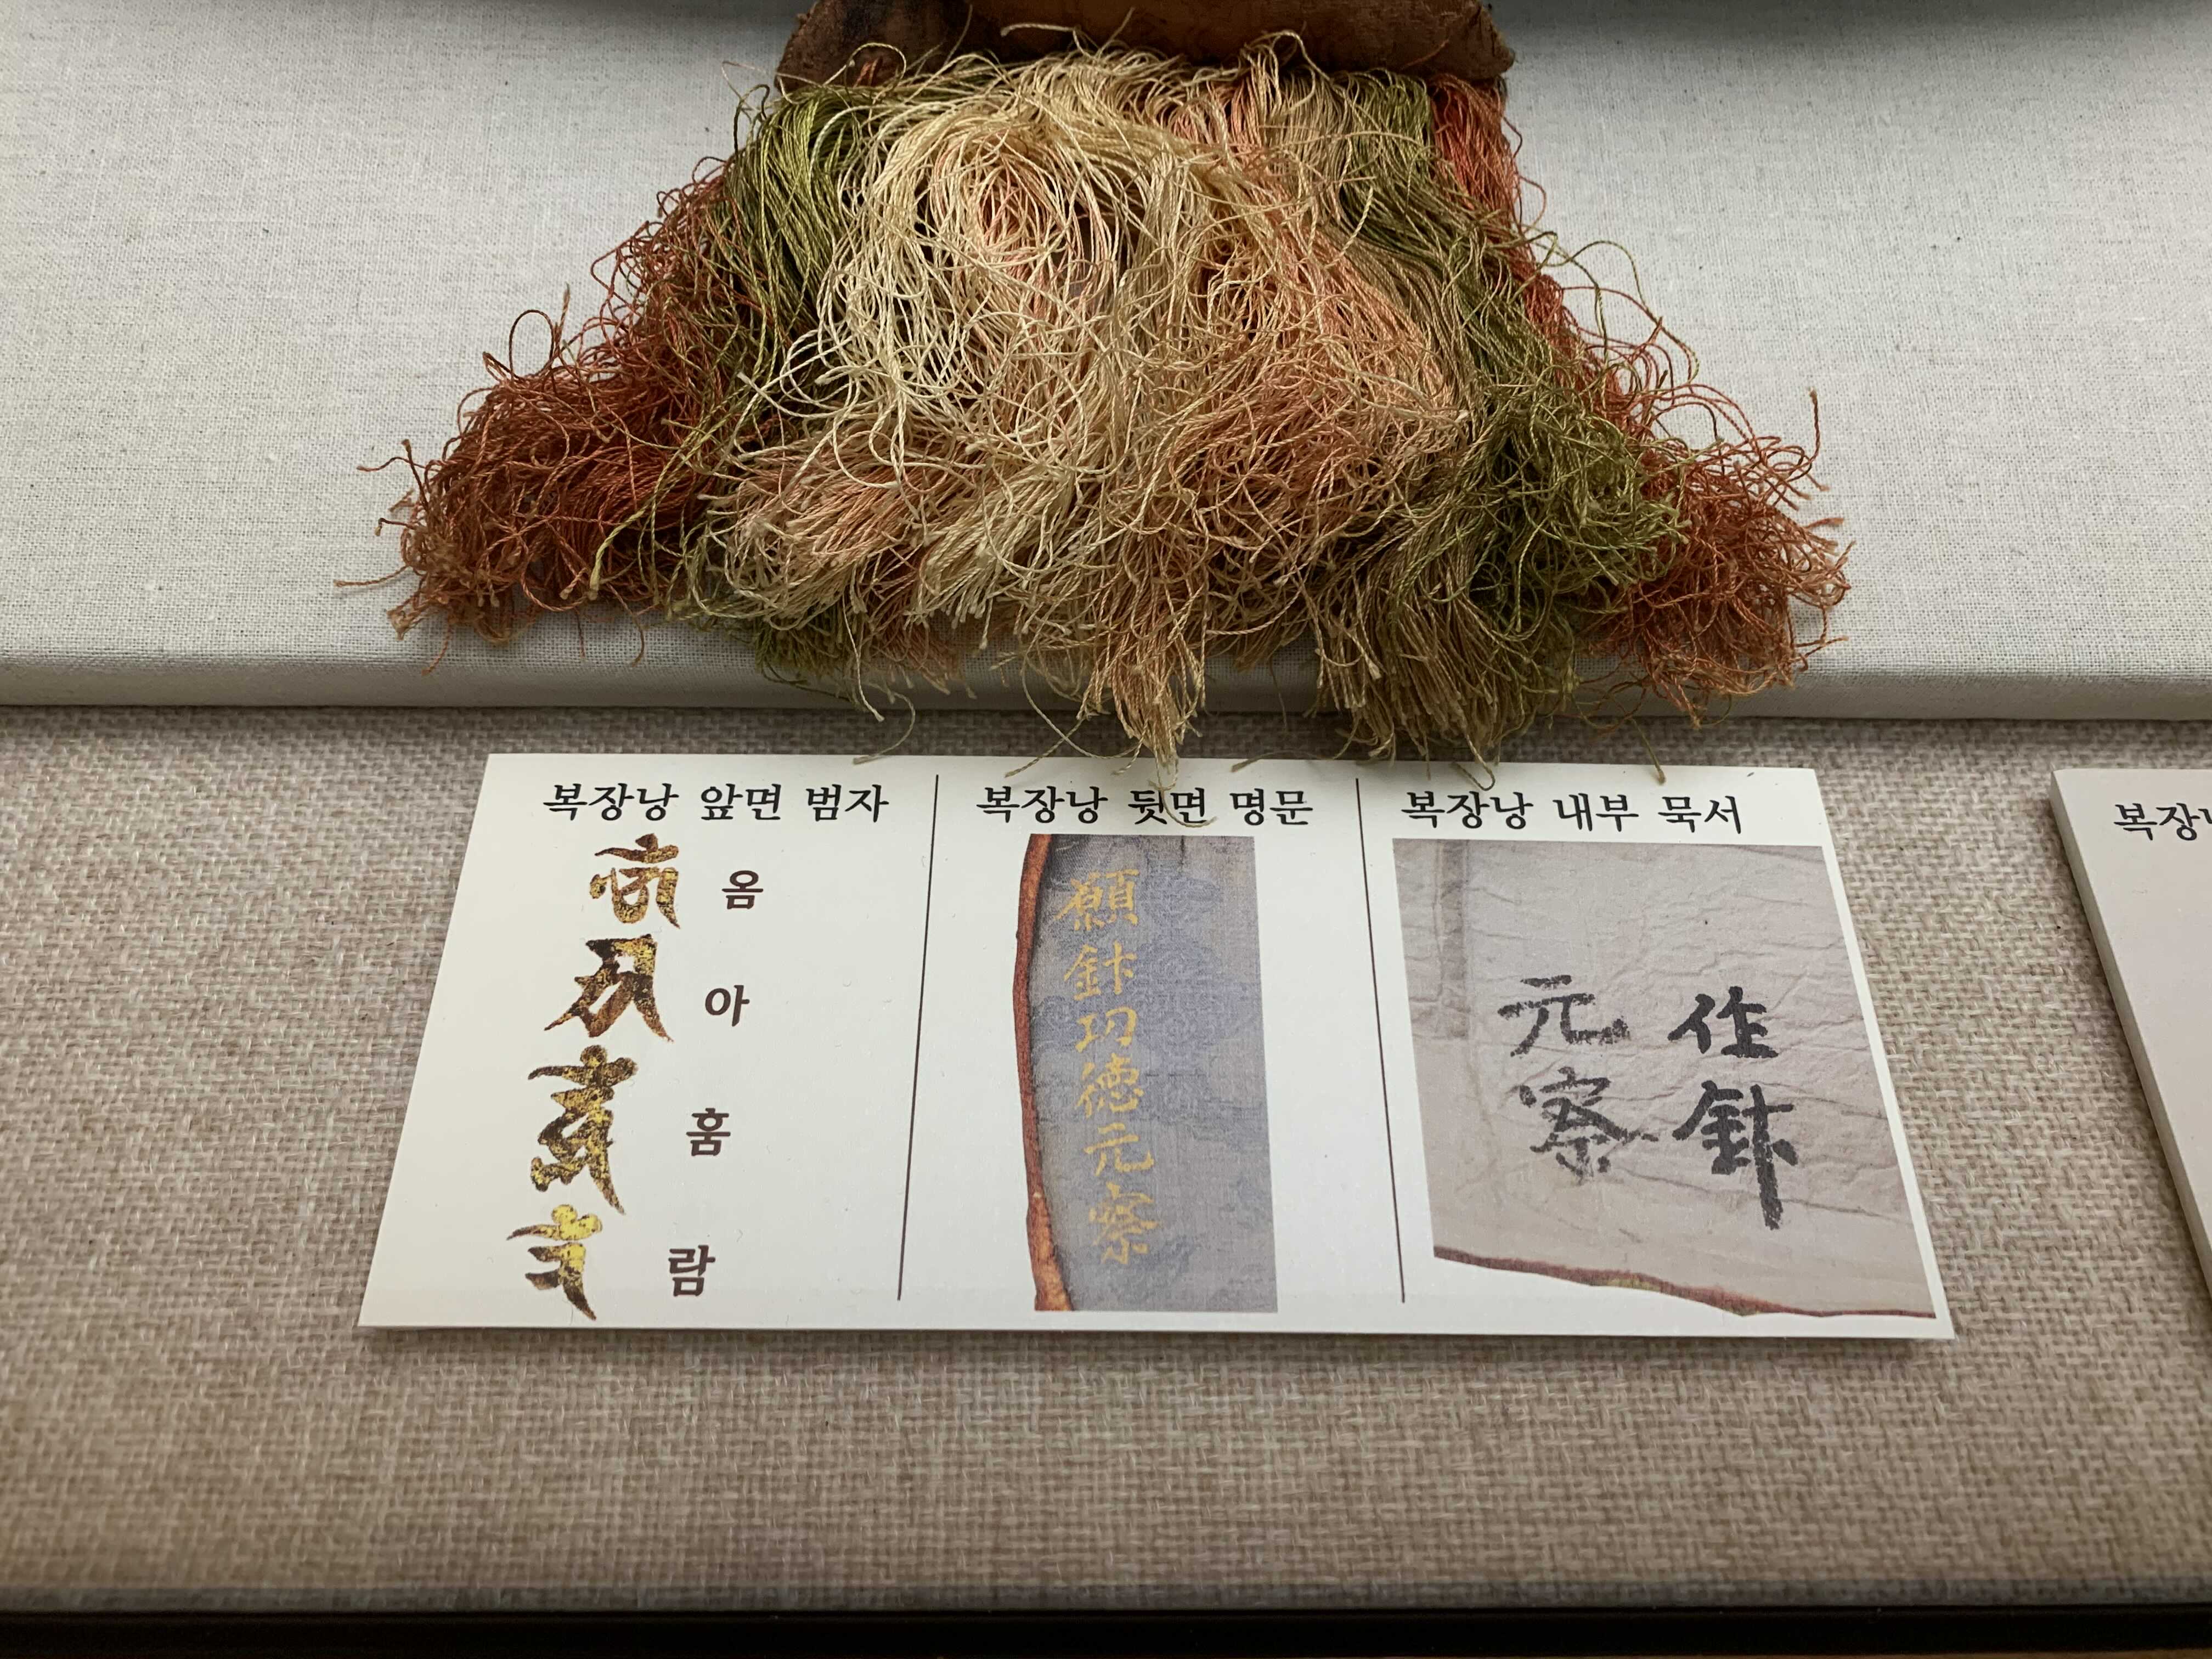 복장낭 앞면 범자
옴
아
훔
람
복장낭 뒷면 명문
願針功德元察
복장낭 내부 묵서
作針
元察
복장